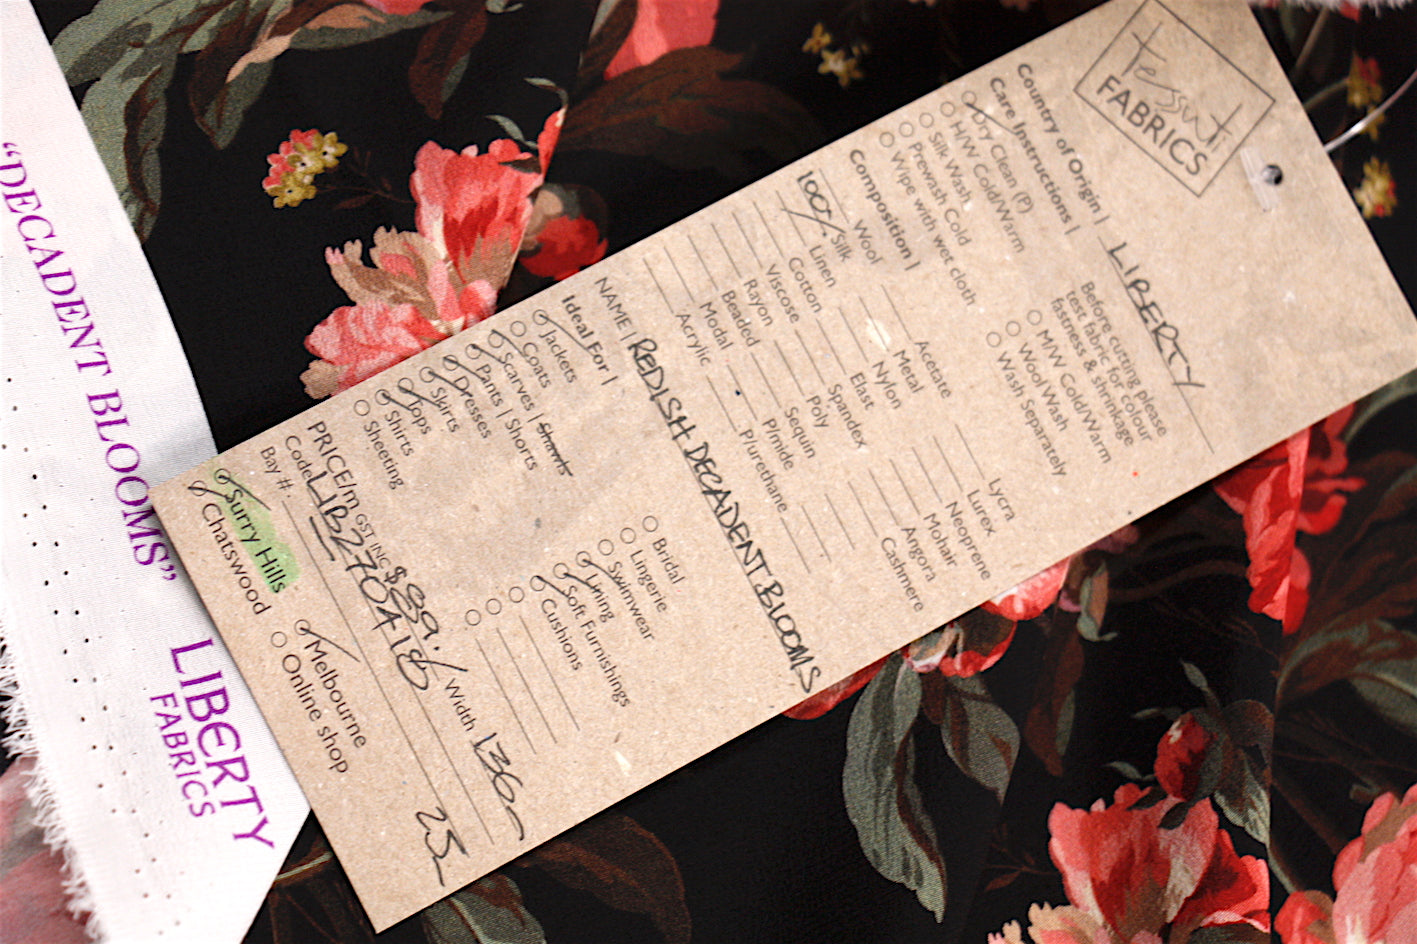 tessuti
FABRICS
Country of Origin | LIBERTY
Care Instructions |
Dry Clean (P)
H/W Cold/Warm
Silk Wash
Prewash Cold
Wipe with wet cloth
Before cutting please
test fabric for colour
fastness & shrinkage
M/W Cold/Warm
Wool Wash
Wash Separately
Composition |
Wool
100% Silk
Linen
Cotton
Viscose
Rayon
Beaded
Modal
Acrylic
Acetate
Metal
Nylon
Elast
Spandex
Poly
Sequin
P/mide
P/urethane
Lycra
Lurex
Neoprene
Mohair
Angora
Cashmere
NAME | REDISH DECADENT BLOOMS
Ideal For |
Jackets
Coats
Scarves | Shawls
Pants | Shorts
Dresses
Skirts
Tops
Shirts
Sheeting
Bridal
Lingerie
Swimwear
Lining
Soft Furnishings
Cushions
PRICE/m GST INC $89. Width 136
Code LIB270418
Bay #. 25
Surry Hills
Chatswood
Melbourne
Online shop
“DECADENT BLOOMS” LIBERTY
FABRICS